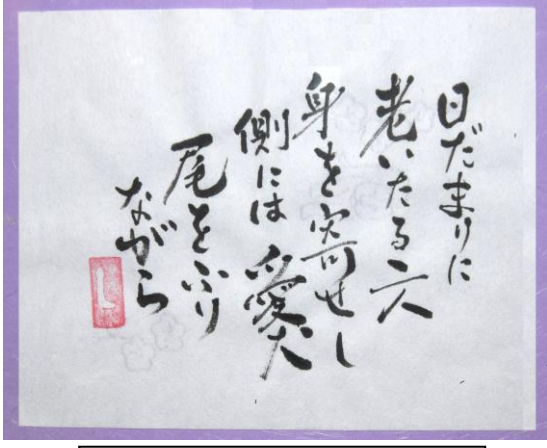 日だまりに
老いたる二人
身を寄せし
側には愛犬
尾をふり
ながら